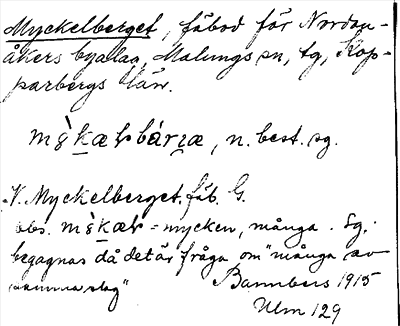 Myckelberget, fäbod för Nordan-
åkers byalag, Malungs sn, tg, Kop-
parbergs län.
mỳkæɫbárjæ, n. best. sg.
V. Myckelberget, fäb. G.
obs. mỳkæɫ = mycken, många. Sg.
begagnas då det är fråga om "många av
samma slag"
Bannbers 1915
Ulm 129